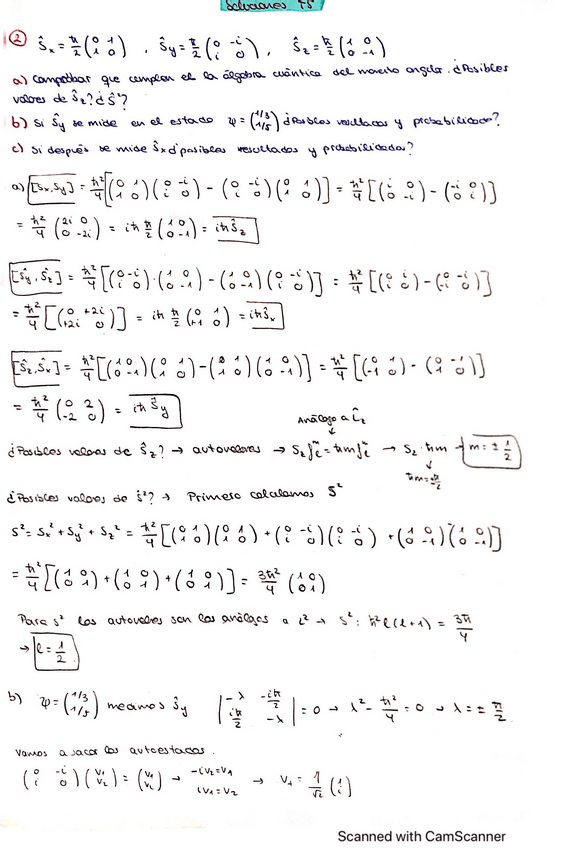 Soluciones T5
② Ŝx = ħ/2 (0 1; 1 0) , Ŝy = ħ/2 (0 -i; i 0) , Ŝz = ħ/2 (1 0; 0 -1)
a) Comprobar que cumplen el la álgebra cuántica del momento angular. ¿Posibles
valores de Ŝz? ¿Ŝ²?
b) Si Ŝy se mide en el estado ψ = (1/3; 1/5) ¿Posibles resultados y probabilidades?
c) Si después se mide Ŝx ¿posibles resultados y probabilidades?
a) [Sx,Sy] = ħ²/4 [(0 1; 1 0)(0 -i; i 0) - (0 -i; i 0)(0 1; 1 0)] = ħ²/4 [(i 0; 0 -i) - (-i 0; 0 i)]
= ħ²/4 (2i 0; 0 -2i) = iħ ħ/2 (1 0; 0 -1) = iħŜz
[Ŝy,Ŝz] = ħ²/4 [(0 -i; i 0)·(1 0; 0 -1) - (1 0; 0 -1)(0 -i; i 0)] = ħ²/4 [(0 i; i 0) - (0 -i; -i 0)]
= ħ²/4 [(0 +2i; +2i 0)] = iħ ħ/2 (0 1; +1 0) = iħŜx
[Ŝz,Ŝx] = ħ²/4 [(1 0; 0 -1)(0 1; 1 0) - (0 1; 1 0)(1 0; 0 -1)] = ħ²/4 [(0 1; -1 0) - (0 -1; 1 0)]
= ħ²/4 (0 2; -2 0) = iħŜy
Análogo a L̂z
¿Posibles valores de Ŝz? → autovalores → → Sz ħm → m = ± 1/2
ħm = ±ħ/2
¿Posibles valores de Ŝ²? → Primero calculamos S²
S² = Sx² + Sy² + Sz² = ħ²/4 [(0 1; 1 0)(0 1; 1 0) + (0 -i; i 0)(0 -i; i 0) + (1 0; 0 -1)(1 0; 0 -1)]
= ħ²/4 [(1 0; 0 1) + (1 0; 0 1) + (1 0; 0 1)] = 3ħ²/4 (1 0; 0 1)
Para S² los autovalores son los análogos a L² → S²: ħ²l(l+1) = 3ħ/4
→ l = 1/2
b) ψ = (1/3; 1/5) medimos Ŝy |-λ -iħ/2; iħ/2 -λ| = 0 → λ² - ħ²/4 = 0 → λ = ± ħ/2
Vamos a sacar los autoestados.
(0 -i; i 0)(v1; v2) = (v1; v2) → -iv2 = v1 iv1 = v2 → v1 = 1/√2 (1; i)
Scanned with CamScanner